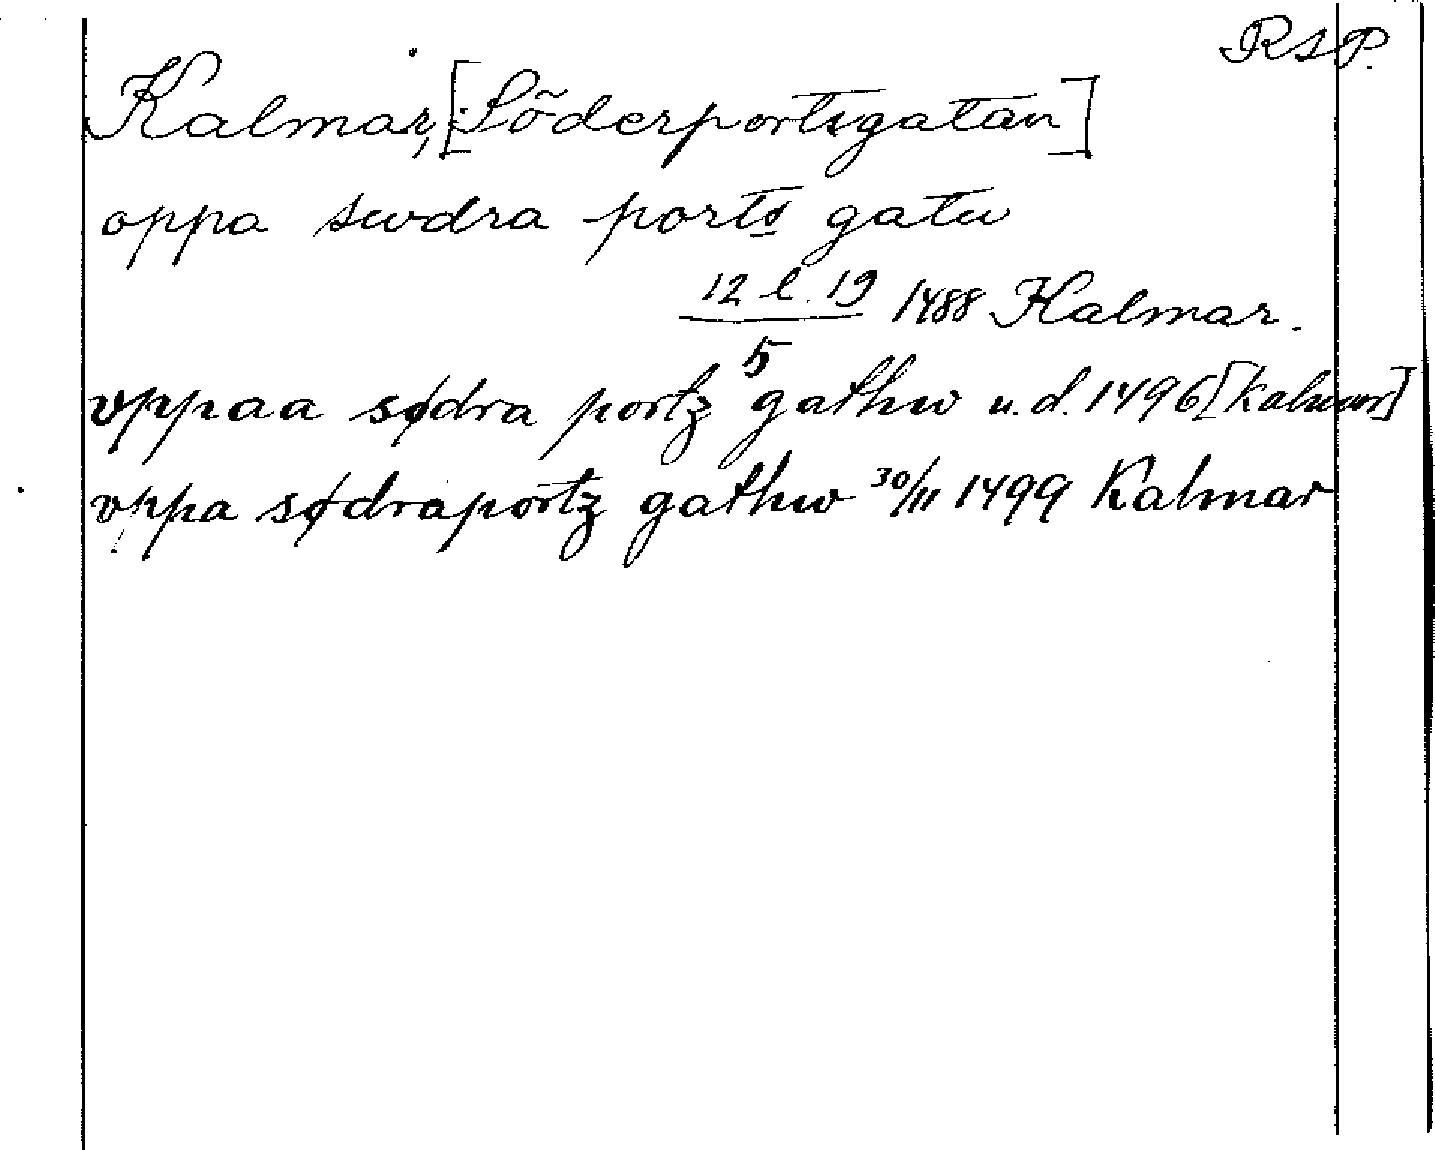 RSP.
Kalmar, [Söderportsgatan]
oppa swdra ports gatu
12 l. 19/5 1488 Kalmar.
vppaa sødra portz gathw u.d. 1496 [Kalmar]
vppa sødraportz gathw 30/11 1499 Kalmar